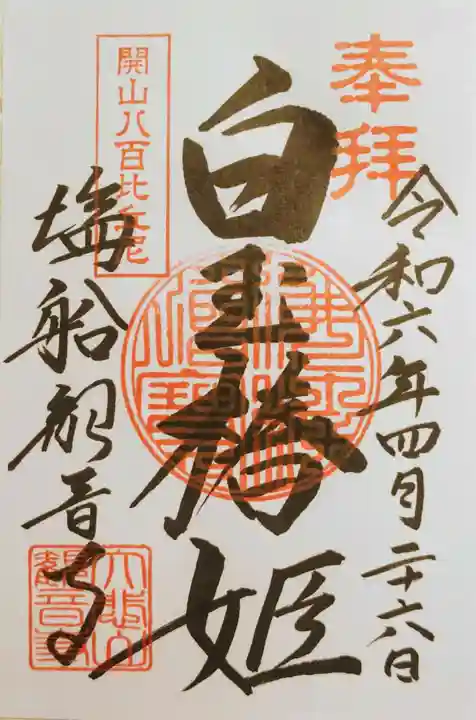 奉拝
令和六年四月二十六日
白玉椿姫
開山八百比丘尼
塩船観音寺